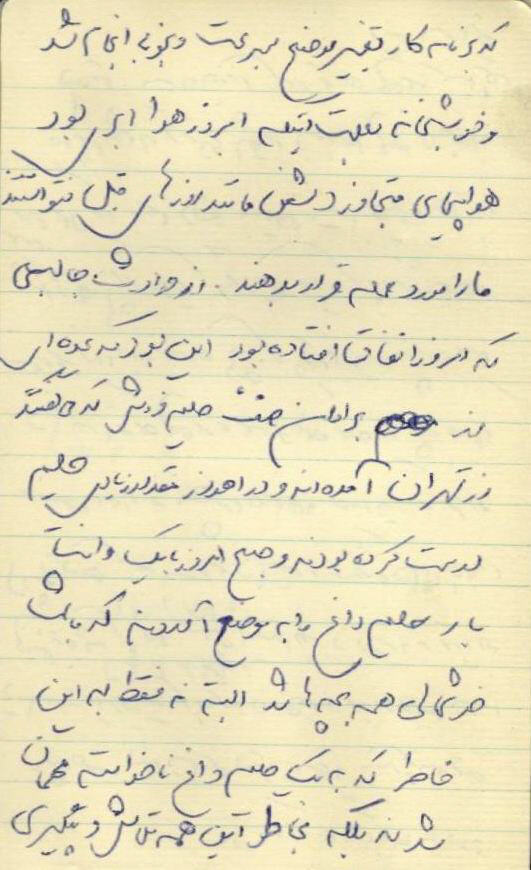 که برنامه کار تغییر موضع بسرعت و بخوبی انجام شد
و خوشبختانه بعلت اینکه امروز هوا ابری بود
هواپیمای متجاوز دشمن مانند روزهای قبل نتوانستند
ما را مورد حمله قرار بدهند. از حوادث جالبی
که امروز اتفاق افتاده بود این بود که عده‌ای
از برادران صنف حلیم فروش که می‌گفتند
از تهران آمده‌اند و در اهواز مقدار زیادی حلیم
درست کرده بودند و صبح امروز با یک وانت
بار حلیم داغ را به موضع آوردند که باعث
خوشحالی همه بچه‌ها شد البته نه فقط به این
خاطر که به یک حلیم داغ ناخواسته مهمان
شدند بلکه بخاطر این همه تلاش و پیگیری